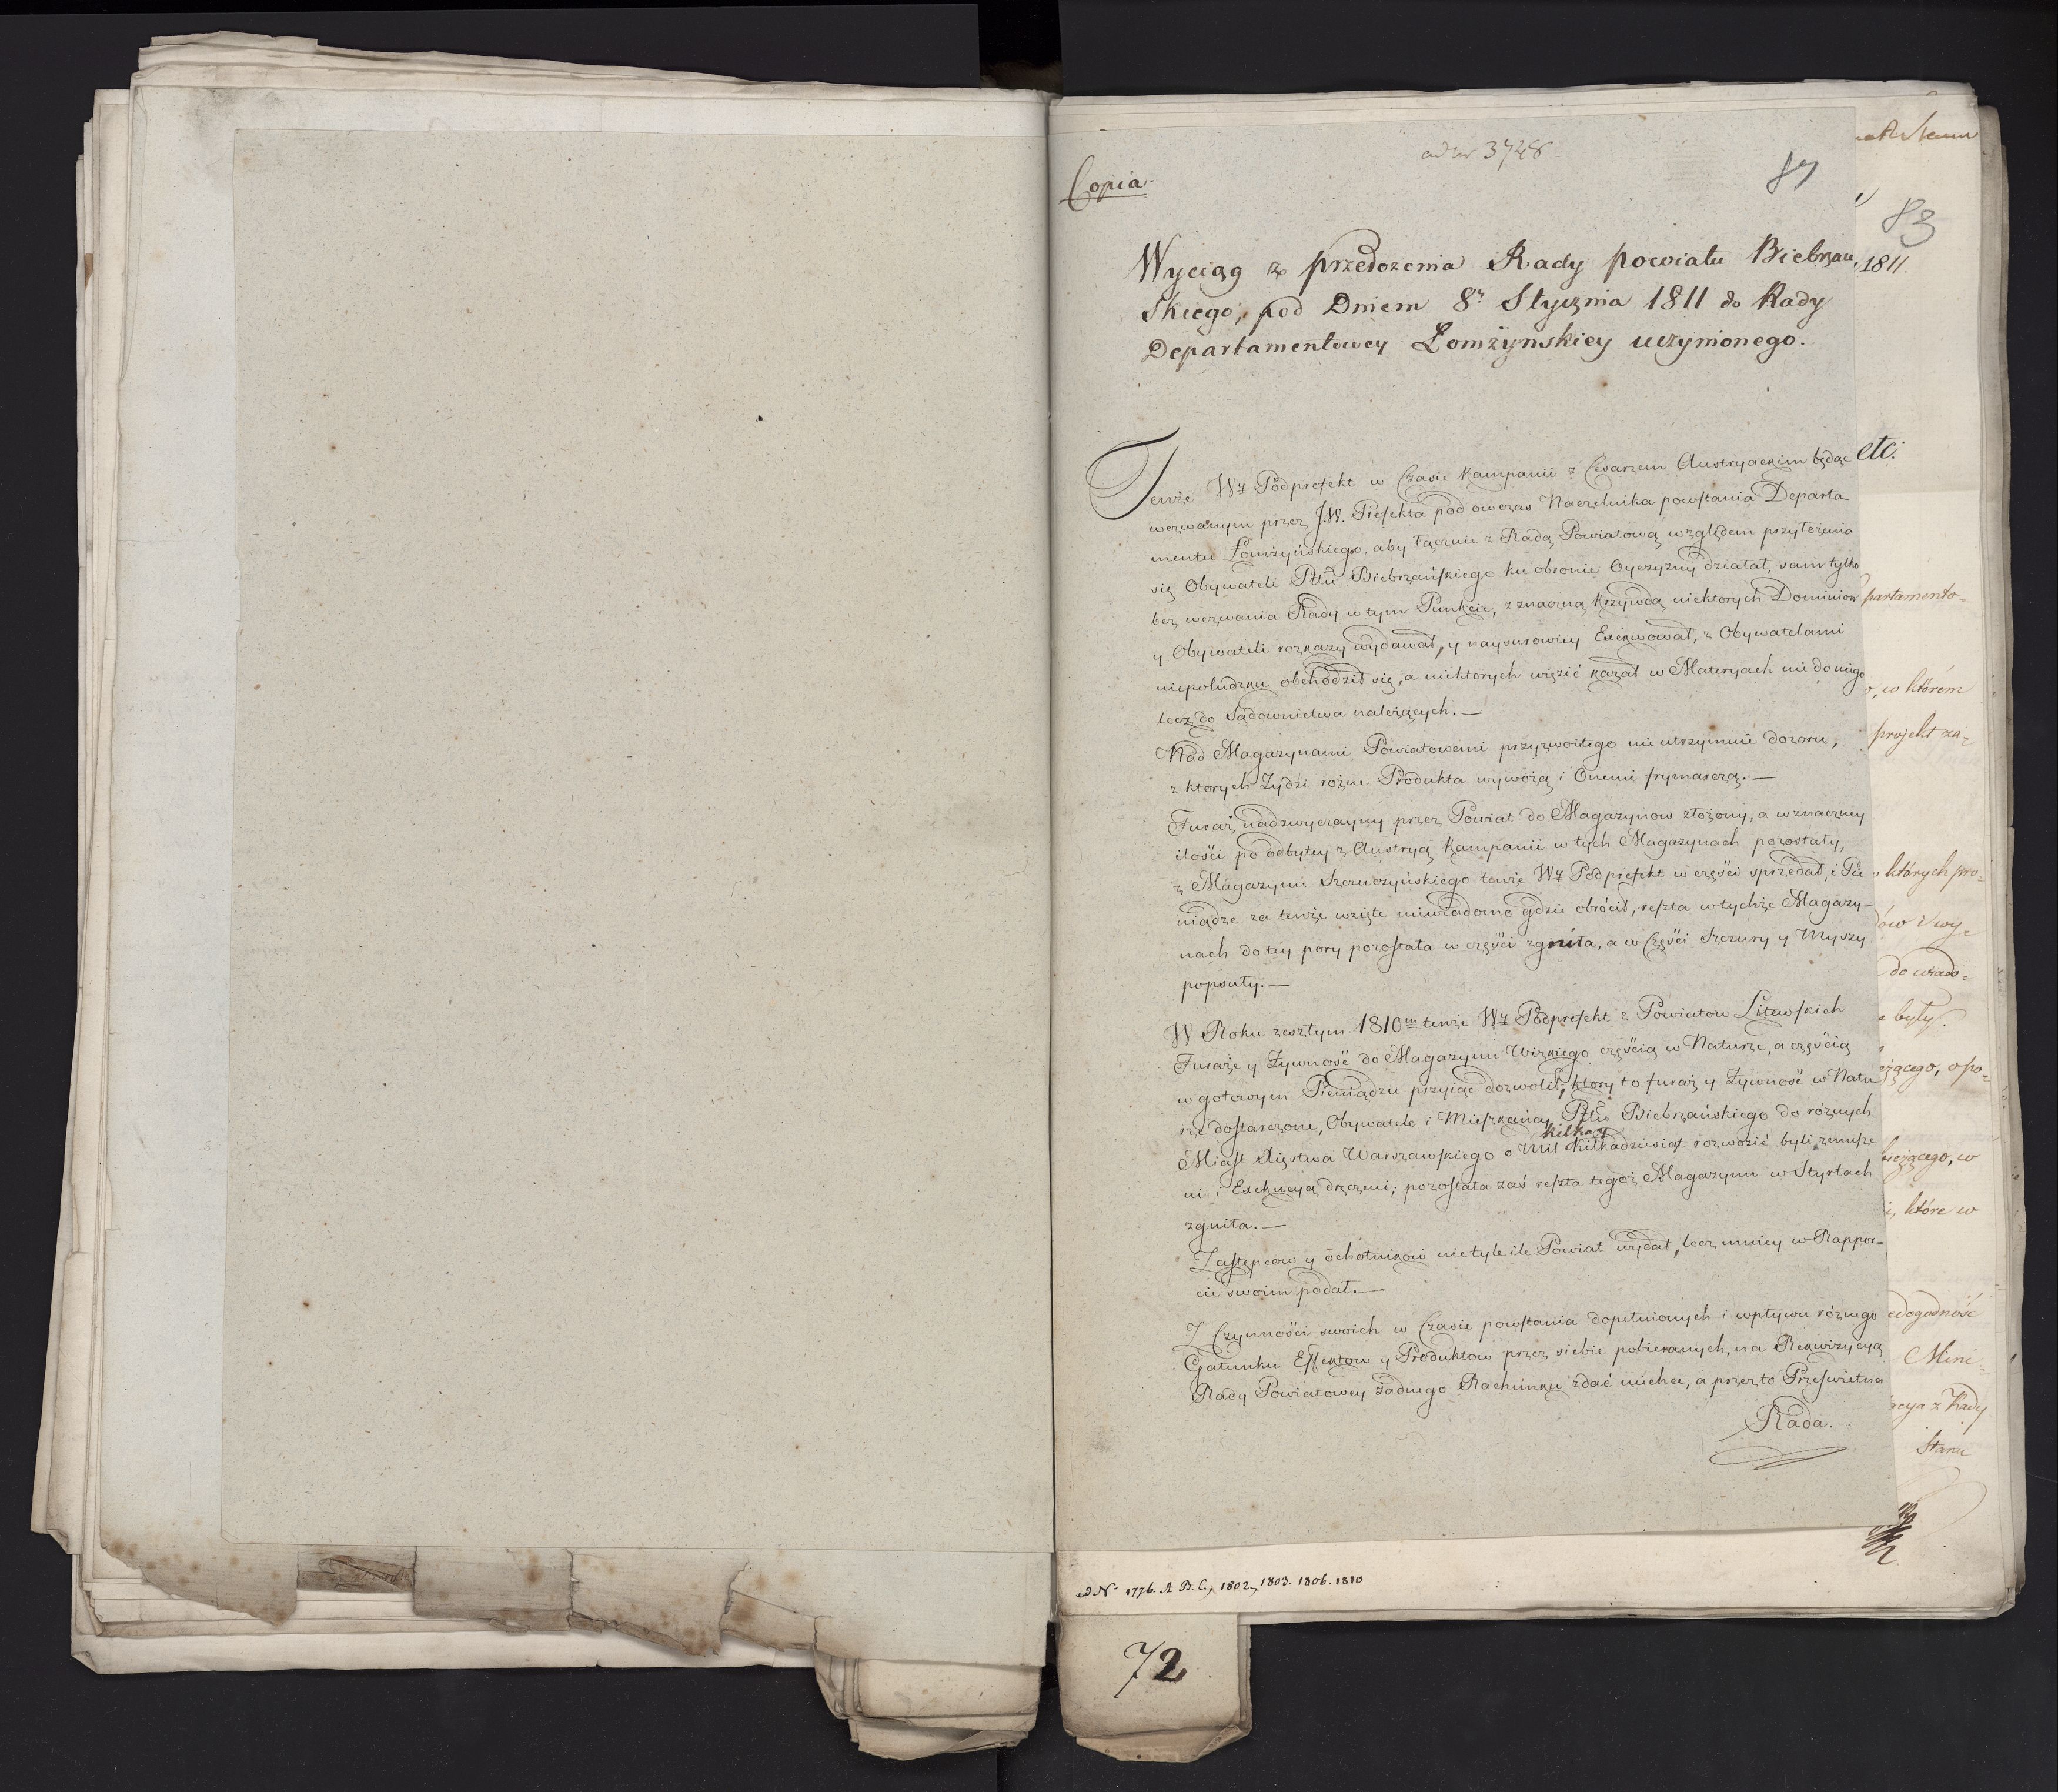 ad No 3748
87
Copia.
Wyciąg z przełożenia Rady powiatu Biebrzań
skiego, pod Dniem 8º Stycznia 1811 do Rady
Departamentowey Łomżynskiey uczynionego.
Tenże WJ Podprefekt w Czasie Kampanii z Cesarzem Austryackim będąc
wezwanym przez J.W. Prefekta pod owczas Naczelnika powstania Departa
mentu Łomżyńskiego, aby łącznie z Radą Powiatową względem przyłożenia
się Obywateli Pttu Biebrzańskiego ku obronie Oyczyzny działał, sam tylko
bez wezwania Rady w tym Punkcie, z znaczną krzywdą niektorych Dominiow
y Obywateli rozkazy wydawał, y naysurowiey Exekwował, z Obywatelami
niepoludzku obchodził się, a niektorych więzić kazał w Materyach nie do niego
lecz do Sądownictwa należących. —
Nad Magazynami Powiatowemi przyzwoitego nie utrzymuie dozoru,
z ktorych Żydzi rożne Produkta wywożą i Onemi frymarczą. —
Furaż nadzwyczayny przez Powiat do Magazynow złożony, a w znaczney
ilości po odbytey z Austryą Kampanii w tych Magazynach pozostały,
z Magazynu Szczuczyńskiego tenże WJ Podprefekt w części sprzedał, i Pie
niądze za tenże wzięte niewiadomo gdzie obrócił, reszta w tychże Magazy-
nach do tey pory pozostała w części zgniła, a w Części Szczury y Myszy
popsuły. —
W Roku zeszłym 1810m tenże WJ Podprefekt z Powiatow Litewskich
Furaże y Żywność do Magazynu Wizkiego częścią w Naturze, a częścią
w gotowym Pieniądzu przyiąc dozwolił, ktory to furaż y Żywność w Natu
rze dostarczone, Obywatele i Mieszkańcy Pttu Biebrzańskiego do różnych
kilka y
Miast Xięstwa Warszawskiego o Mil kilkadziesiąt rozwozić byli zmusze
ni i Exekucyą dręczeni; pozostała zaś reszta tegoż Magazynu w Styrtach
zgniła. —
Zastępcow y ochotnikow nie tyle ile Powiat wydał, lecz mniey w Rappor-
cie swoim podał. —
Z Czynności swoich w Czasie powstania dopełnionych i wpływu różnego
Gatunku Effektow y Produktow przez siebie pobieranych, na Rekwizycyą
Rady Powiatowey żadnego Rachunku zdać niechce, a przez to Prześwietna
Rada.
83
1811.
etc.
partamento-
, w którém
projekt za-
których pro-
ów i wy-
do wiado-
były.
żącego, o po-
, w
i, które w
edogodność
Mini-
acya z Rady
Stanu
ad N. 1776. A B. C., 1802, 1803. 1806. 1810
72